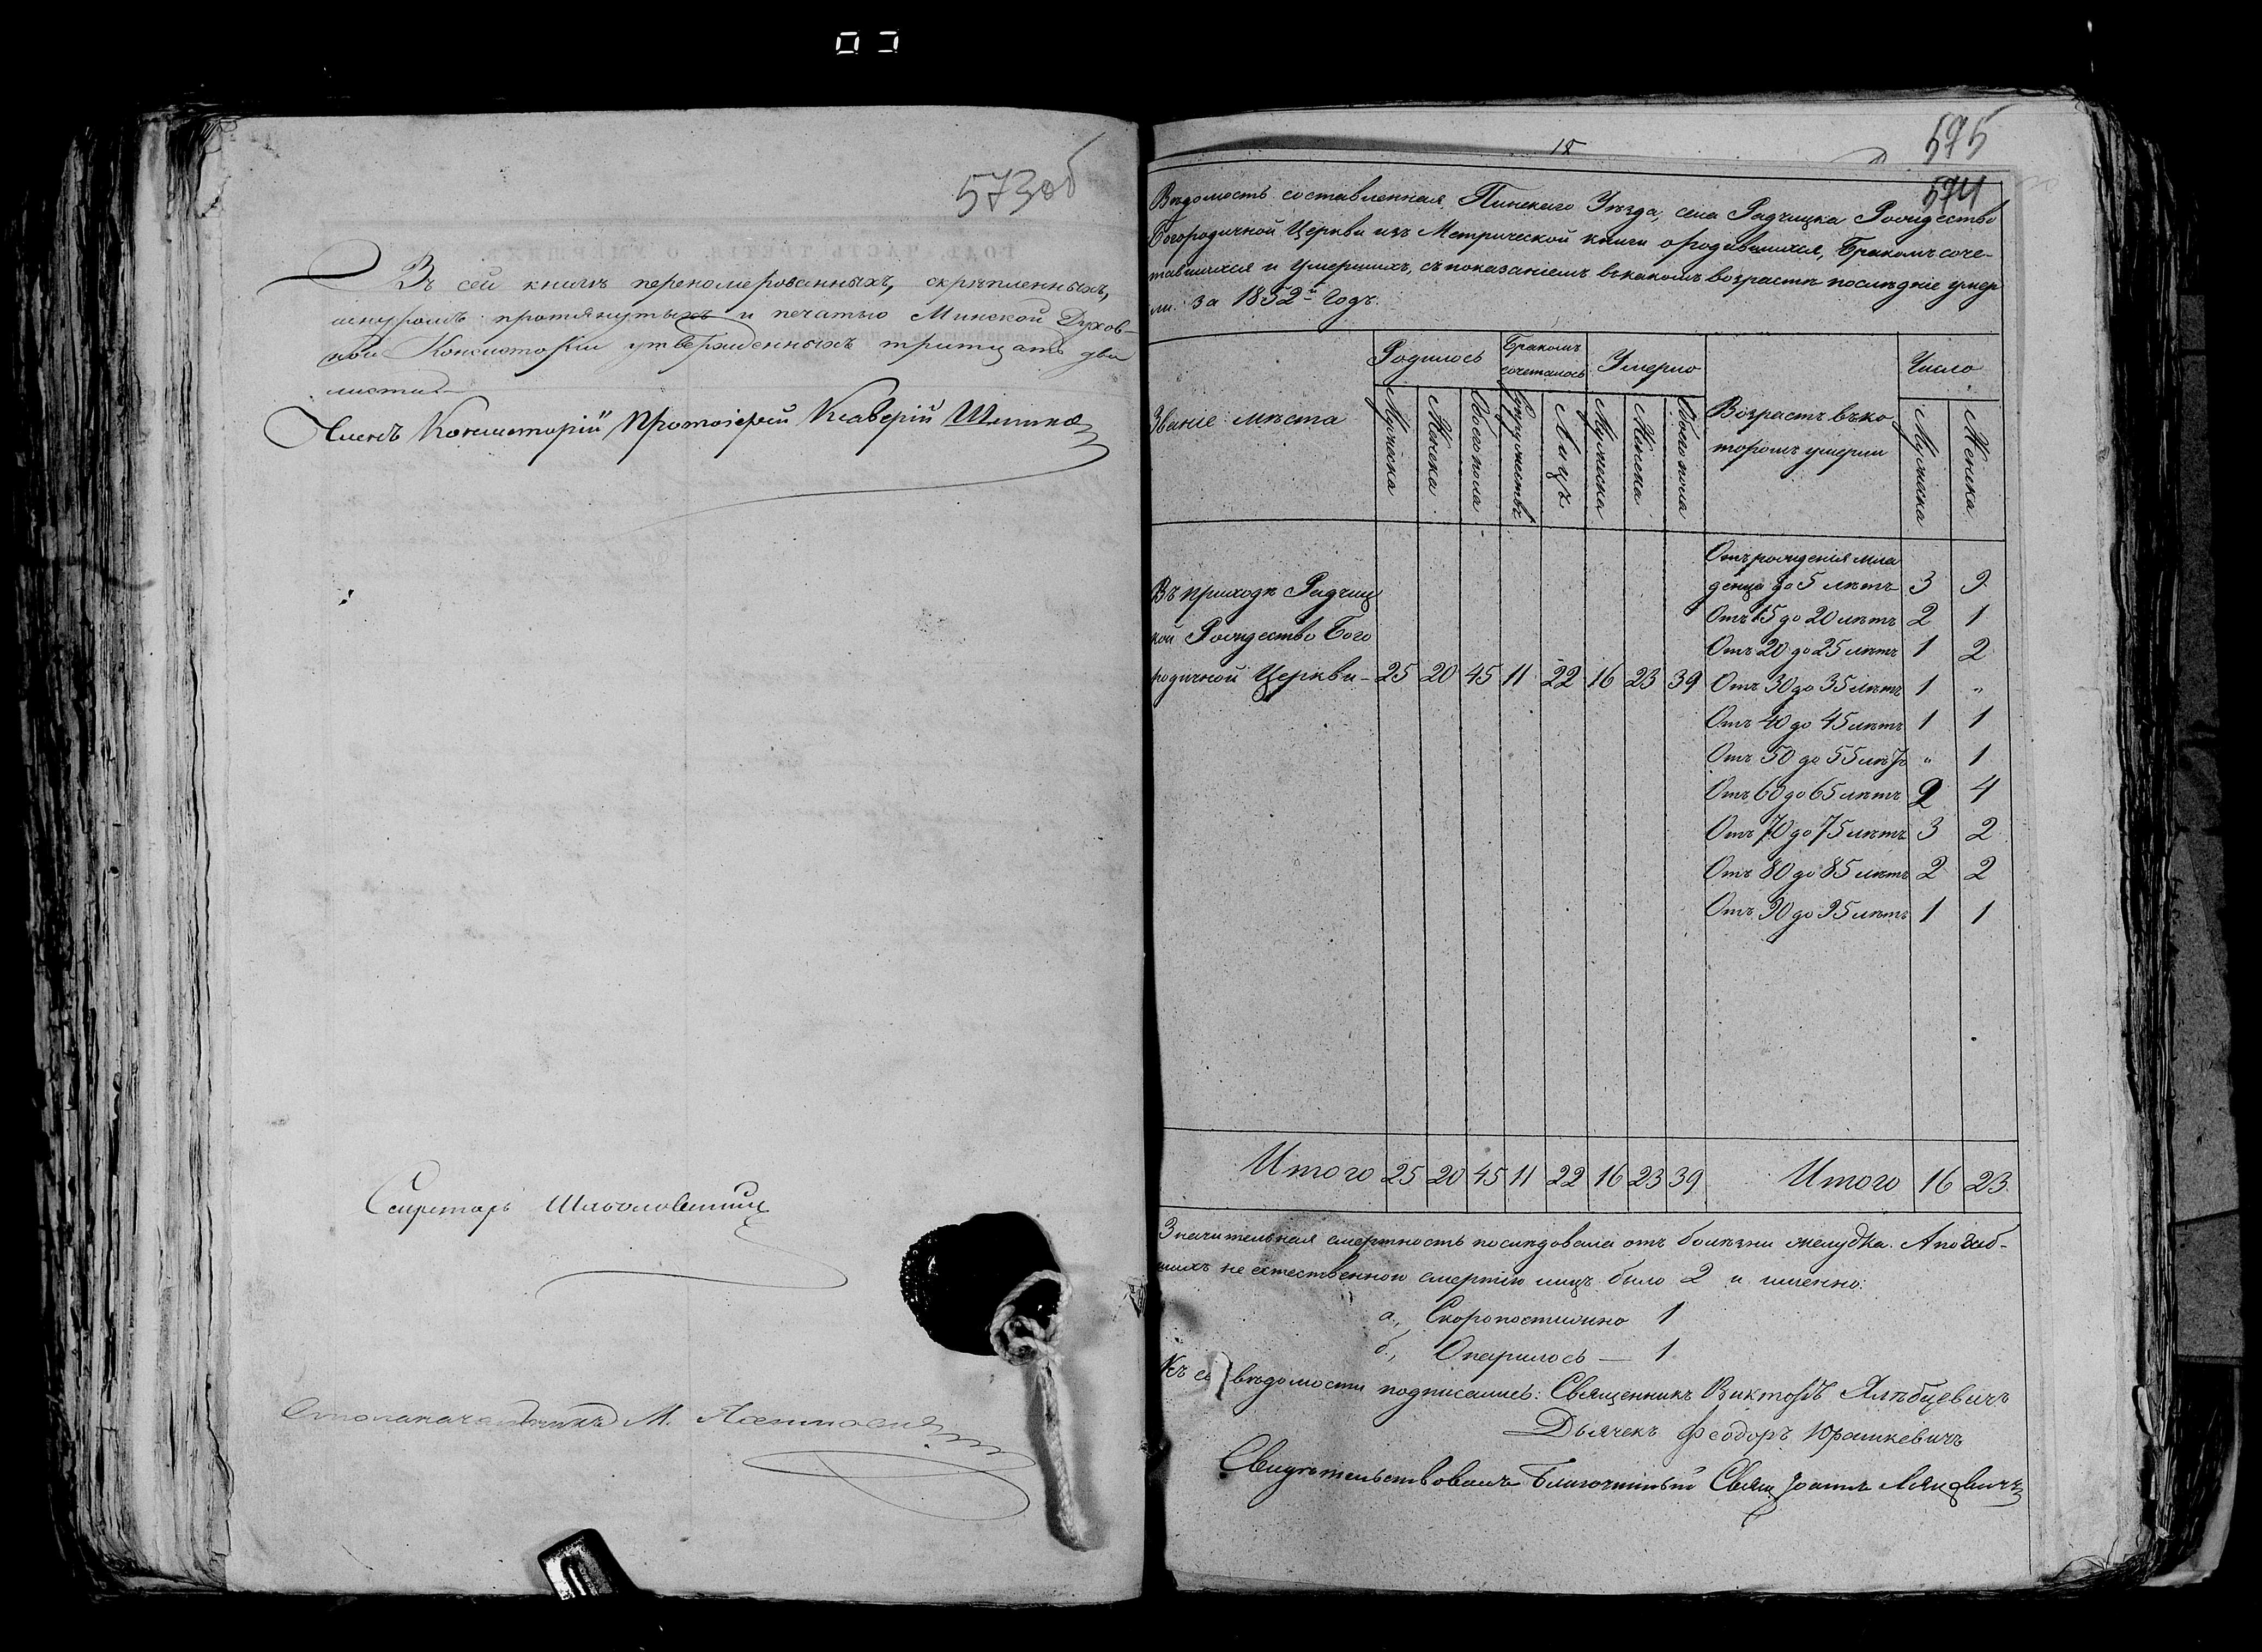 573об
Въ сей книгѣ перенумерованныхъ, скрѣпленныхъ,
шнуромъ протянутыхъ и печатью Минской Духов-
ной Консисторіи утвержденныхъ тритцать два
листа
Членъ Консисторіи Протоіерей Ксаверій
Секретарь
Столоначальникъ М.
18
575
574
Вѣдомость составленная, Пинскаго Уѣзда, села Радчицка Рождество
Богородичной Церкви изъ Метрической книги о родившихся, Бракомъ соче-
тавшихся и Умершихъ, съ показаніемъ въ какомъ возрастѣ послѣдніе умер
ли. За 1852й Годъ.
Званіе мѣста
Родилось
Бракомъ сочеталось
Умерло
Возрастъ въ ко
торомъ умерли
Число
Мужеска
Женска
Обоего пола
Супружествъ
Лицъ
Мужеска
Женска
Обоего пола
Мужеска
Женска
Въ приходѣ Радчиц
кой Рождество Бого
родичной Церкви - 25 20 45 11 22 16 23 39
Отъ рожденія мла
денца до 5 лѣтъ 3 9
Отъ 15 до 20 лѣтъ 2 1
Отъ 20 до 25 лѣтъ 1 2
Отъ 30 до 35 лѣтъ 1 "
Отъ 40 до 45 лѣтъ 1 1
Отъ 50 до 55 лѣтъ " 1
Отъ 60 до 65 лѣтъ 2 4
Отъ 70 до 75 лѣтъ 3 2
Отъ 80 до 85 лѣтъ 2 2
Отъ 90 до 95 лѣтъ 1 1
Итого 25 20 45 11 22 16 23 39 Итого 16 23
Значительная смертность послѣдовала отъ болѣзни желудка. А погиб-
шихъ не естественною смертію лицъ было 2 и именно:
а., Скоропостижно 1
б., Опарилось — 1
Къ сей вѣдомости подписались: Священникъ Викторъ Ялѣбцевичъ
Дьячекъ Феодоръ Юрашкевичъ
Свидѣтельствовалъ Благочинный Свящ Іоаннъ